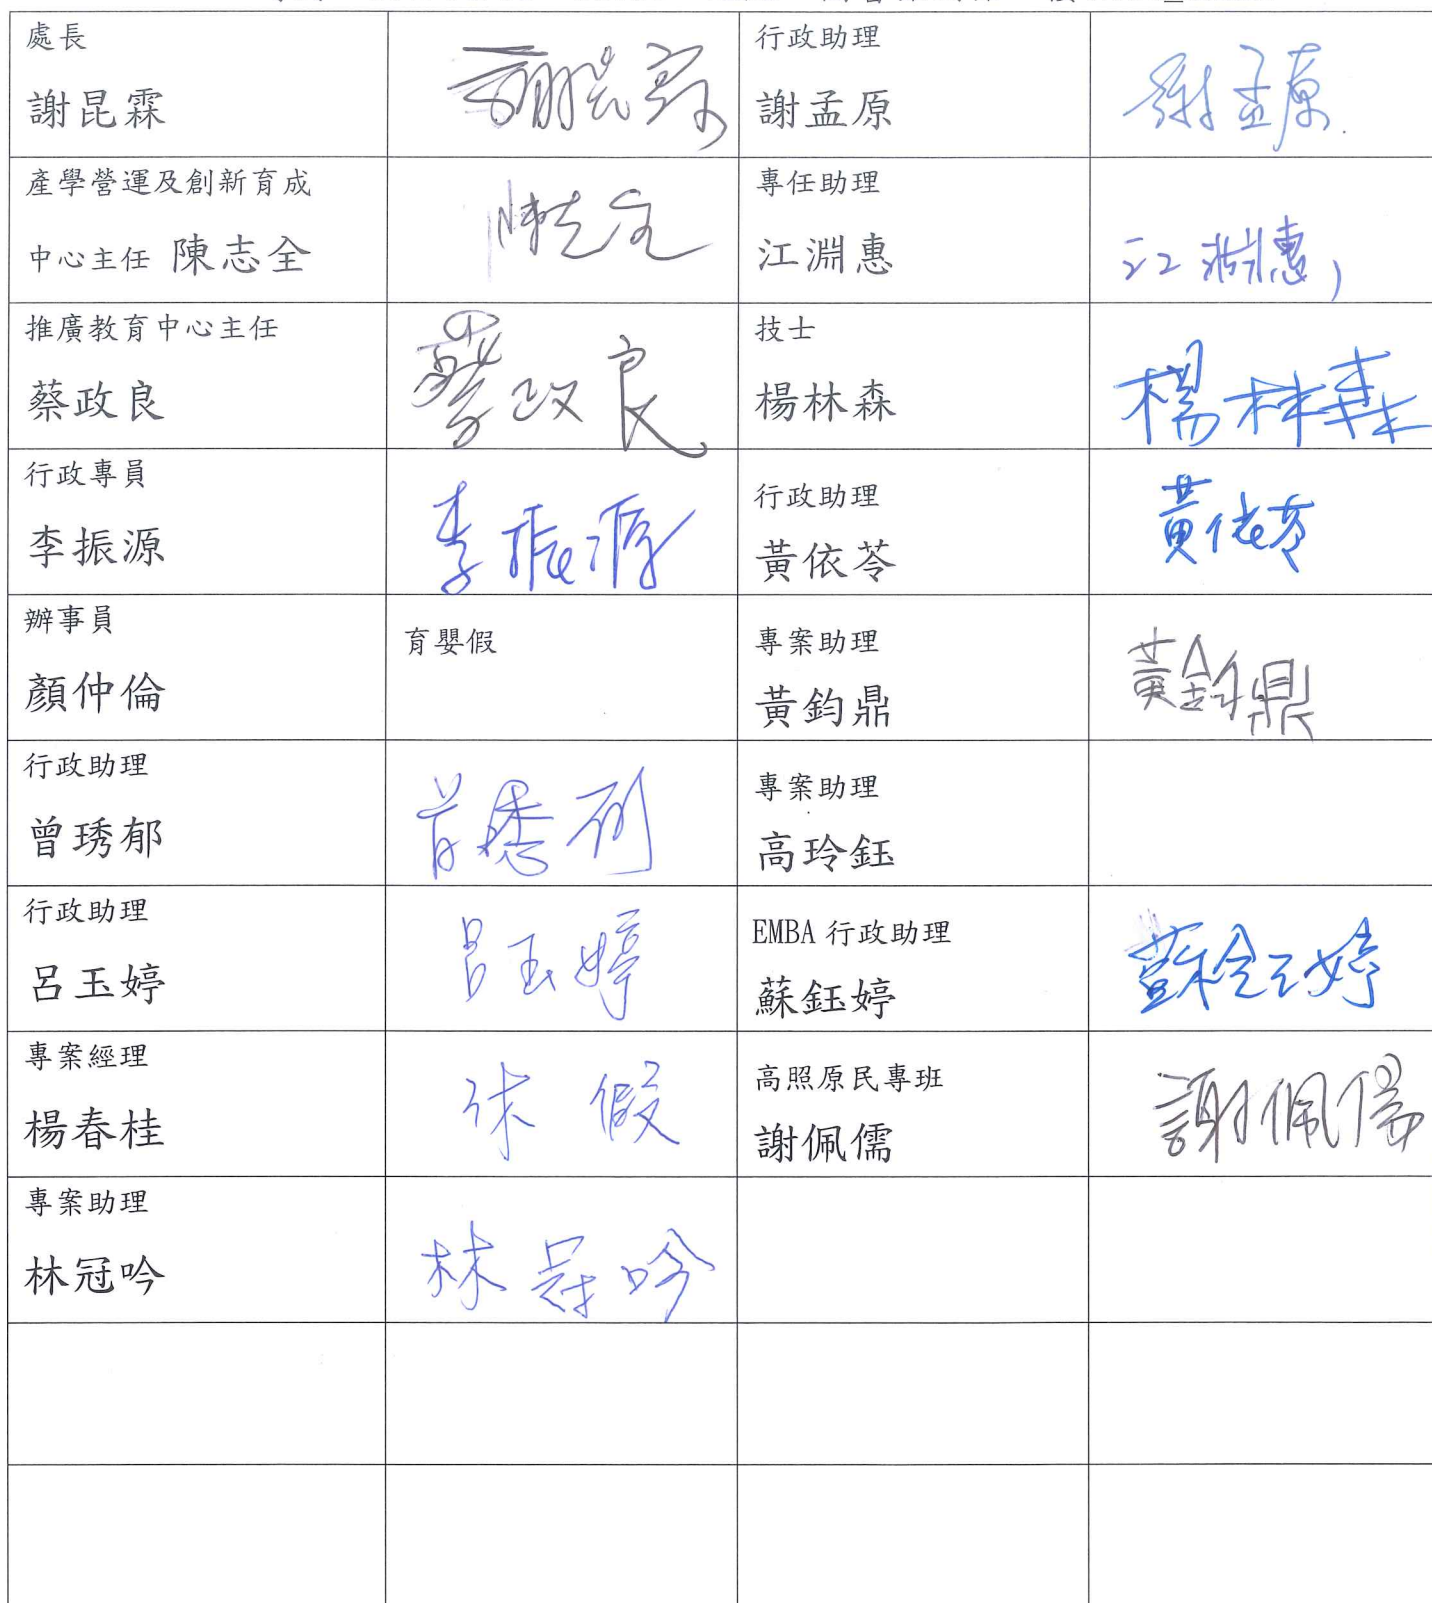 處長
謝昆霖
行政助理
謝孟原
謝孟原
產學營運及創新育成
中心主任 陳志全
陳志全
專任助理
江淵惠
江淵惠
推廣教育中心主任
蔡政良
蔡政良
技士
楊林森
楊林森
行政專員
李振源
李振源
行政助理
黃依苓
黃依苓
辦事員
顏仲倫
育嬰假
專案助理
黃鈞鼎
黃鈞鼎
行政助理
曾琇郁
專案助理
高玲鈺
行政助理
呂玉婷
呂玉婷
EMBA 行政助理
蘇鈺婷
蘇鈺婷
專案經理
楊春桂
休假
高照原民專班
謝佩儒
謝佩儒
專案助理
林冠吟
林冠吟